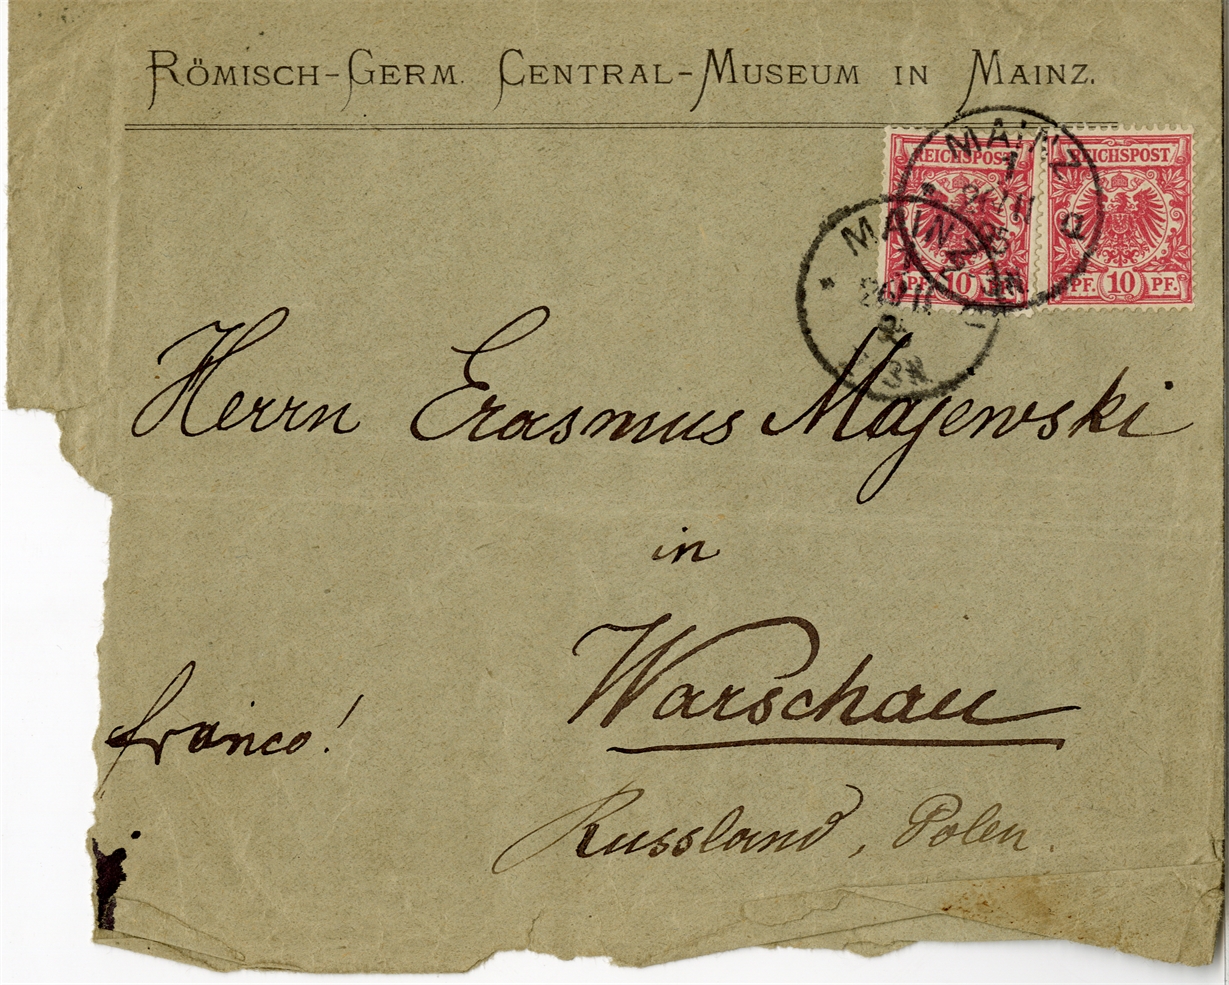 RÖMISCH-GERM. CENTRAL-MUSEUM IN MAINZ.
REICHSPOST
PF. 10 PF.
REICHSPOST
PF. 10 PF.
MAINZ
1
MAINZ
Herrn Erasmus Majewski
in
Warschau
franco!
Russland, Polen.